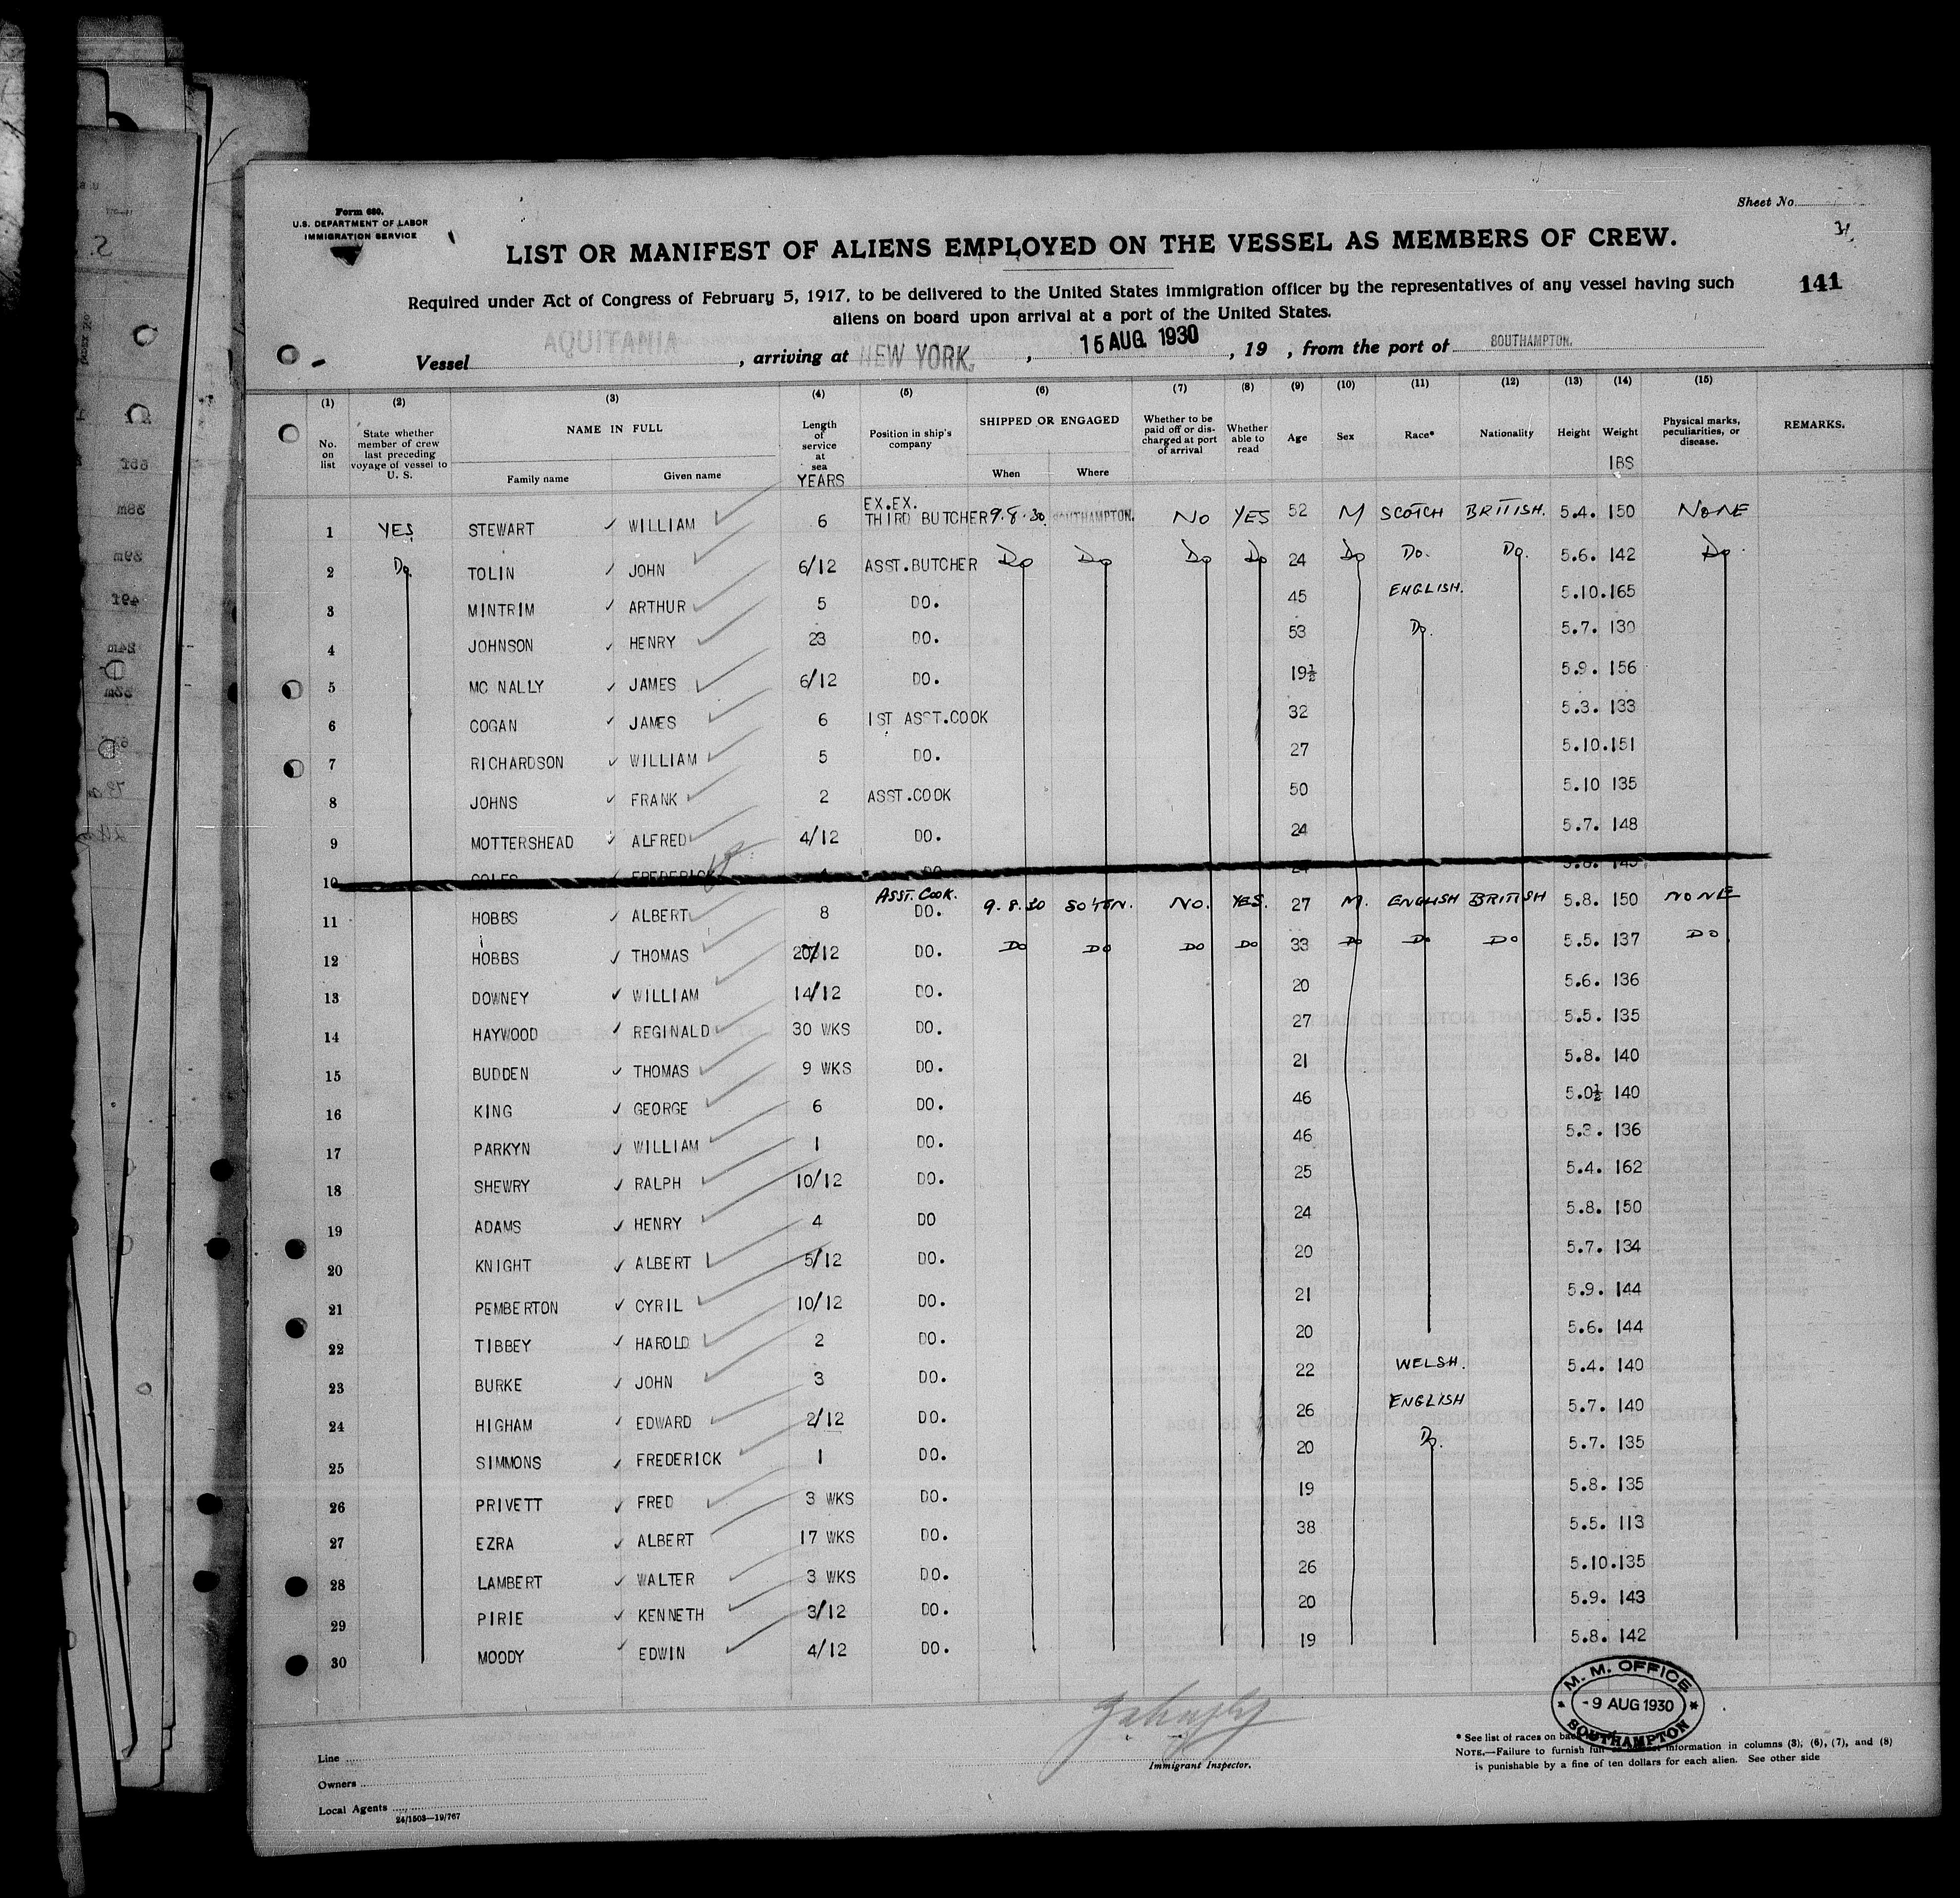 Form 680.
U.S. DEPARTMENT OF LABOR
IMMIGRATION SERVICE
Sheet No.
LIST OR MANIFEST OF ALIENS EMPLOYED ON THE VESSEL AS MEMBERS OF CREW.
141
Required under Act of Congress of February 5, 1917, to be delivered to the United States immigration officer by the representatives of any vessel having such
aliens on board upon arrival at a port of the United States.
Vessel AQUITANIA, arriving at NEW YORK. , 15 AUG. 1930, 19 , from the port of SOUTHAMPTON.
(1) (2) (3) (4) (5) (6) (7) (8) (9) (10) (11) (12) (13) (14) (15)
No. on list State whether member of crew last preceding voyage of vessel to U. S. NAME IN FULL Family name Given name Length of service at sea YEARS Position in ship's company SHIPPED OR ENGAGED When Where Whether to be paid off or discharged at port of arrival Whether able to read Age Sex Race* Nationality Height Weight lBS Physical marks, peculiarities, or disease. REMARKS.
1 YES STEWART WILLIAM 6 EX.EX. THIRD BUTCHER 9.8.30. SOUTHAMPTON. NO YES 52 M SCOTCH BRITISH. 5.4. 150 NONE
2 Do TOLIN JOHN 6/12 ASST.BUTCHER Do Do Do Do 24 Do Do. Do. 5.6. 142 Do.
3 MINTRIM ARTHUR 5 DO. 45 ENGLISH. 5.10.165
4 JOHNSON HENRY 23 DO. 53 Do. 5.7. 130
5 MC NALLY JAMES 6/12 DO. 19½ 5.9. 156
6 COGAN JAMES 6 1ST ASST.COOK 32 5.3. 133
7 RICHARDSON WILLIAM 5 DO. 27 5.10.151
8 JOHNS FRANK 2 ASST.COOK 50 5.10 135
9 MOTTERSHEAD ALFRED 4/12 DO. 24 5.7. 148
10 COLES FREDERICK DO
11 HOBBS ALBERT 8 ASST. COOK. DO. 9.8.30 SO'TON. NO. YES. 27 M. ENGLISH BRITISH 5.8. 150 NONE
12 HOBBS THOMAS DO. DO DO DO DO 33 DO DO DO 5.5. 137 DO
13 DOWNEY WILLIAM 14/12 DO. 20 5.6. 136
14 HAYWOOD REGINALD 30 WKS DO. 27 5.5. 135
15 BUDDEN THOMAS 9 WKS DO. 21 5.8. 140
16 KING GEORGE 6 DO. 46 5.0½ 140
17 PARKYN WILLIAM 1 DO. 46 5.3. 136
18 SHEWRY RALPH 10/12 DO. 25 5.4. 162
19 ADAMS HENRY 4 DO 24 5.8. 150
20 KNIGHT ALBERT 5/12 DO. 20 5.7. 134
21 PEMBERTON CYRIL 10/12 DO. 21 5.9. 144
22 TIBBEY HAROLD 2 DO. 20 5.6. 144
23 BURKE JOHN 3 DO. 22 WELSH. 5.4. 140
24 HIGHAM EDWARD 2/12 DO. 26 ENGLISH 5.7. 140
25 SIMMONS FREDERICK 1 DO. 20 Do. 5.7. 135
26 PRIVETT FRED 3 WKS DO. 19 5.8. 135
27 EZRA ALBERT 17 WKS DO. 38 5.5. 113
28 LAMBERT WALTER 3 WKS DO. 26 5.10.135
29 PIRIE KENNETH 3/12 DO. 20 5.9. 143
30 MOODY EDWIN 4/12 DO. 19 5.8. 142
M. M. OFFICE
- 9 AUG 1930
SOUTHAMPTON
Line
Owners
Local Agents
24/1503—19/767
Immigrant Inspector.
* See list of races on
NOTE.—Failure to furnish information in columns (3), (6), (7), and (8)
is punishable by a fine of ten dollars for each alien. See other side